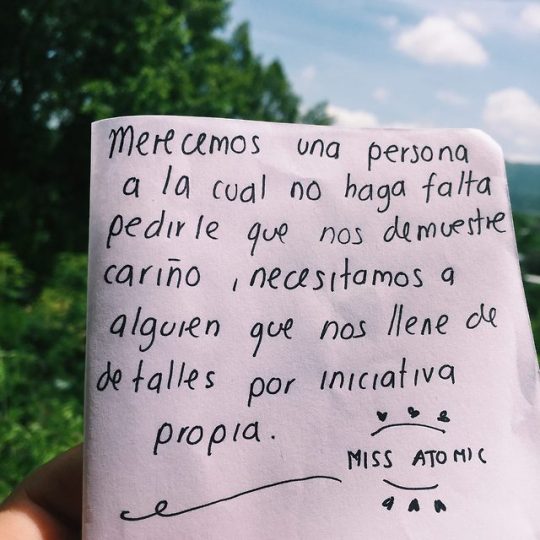 Merecemos una persona
a la cual no haga falta
pedirle que nos demuestre
cariño, necesitamos a
alguien que nos llene de
detalles por iniciativa
propia.
MISS ATOMIC